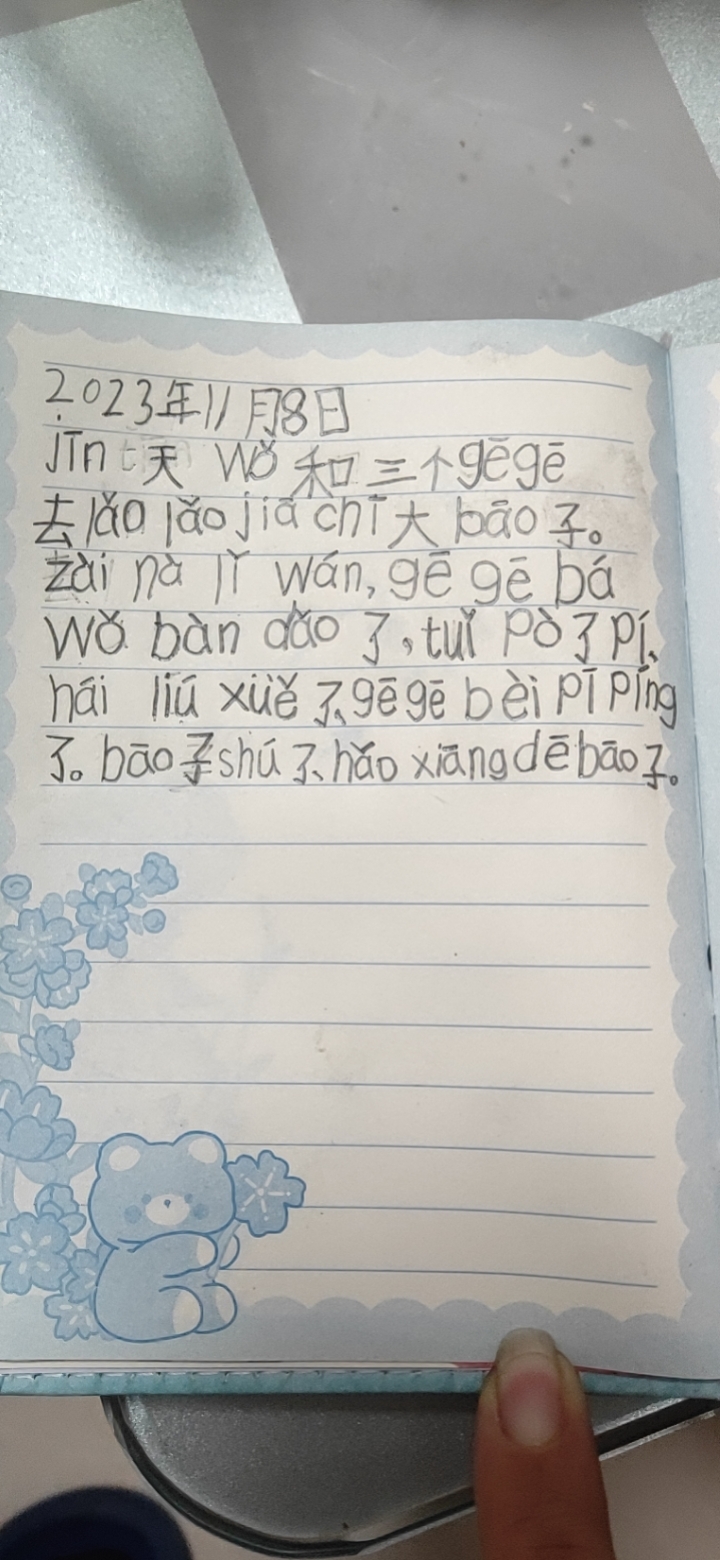 2023年11月8日
jīn天 wǒ 和三个gēgē
去lǎo lǎo jiā chī 大 bāo 子。
zài nà lǐ wán, gē gē bá
wǒ bàn dǎo 了,tuǐ pò 了 pí、
hái liú xüě 了、gē gē bèi pī píng
了。bāo 子 shú 了、hǎo xiāng dē bāo 子。